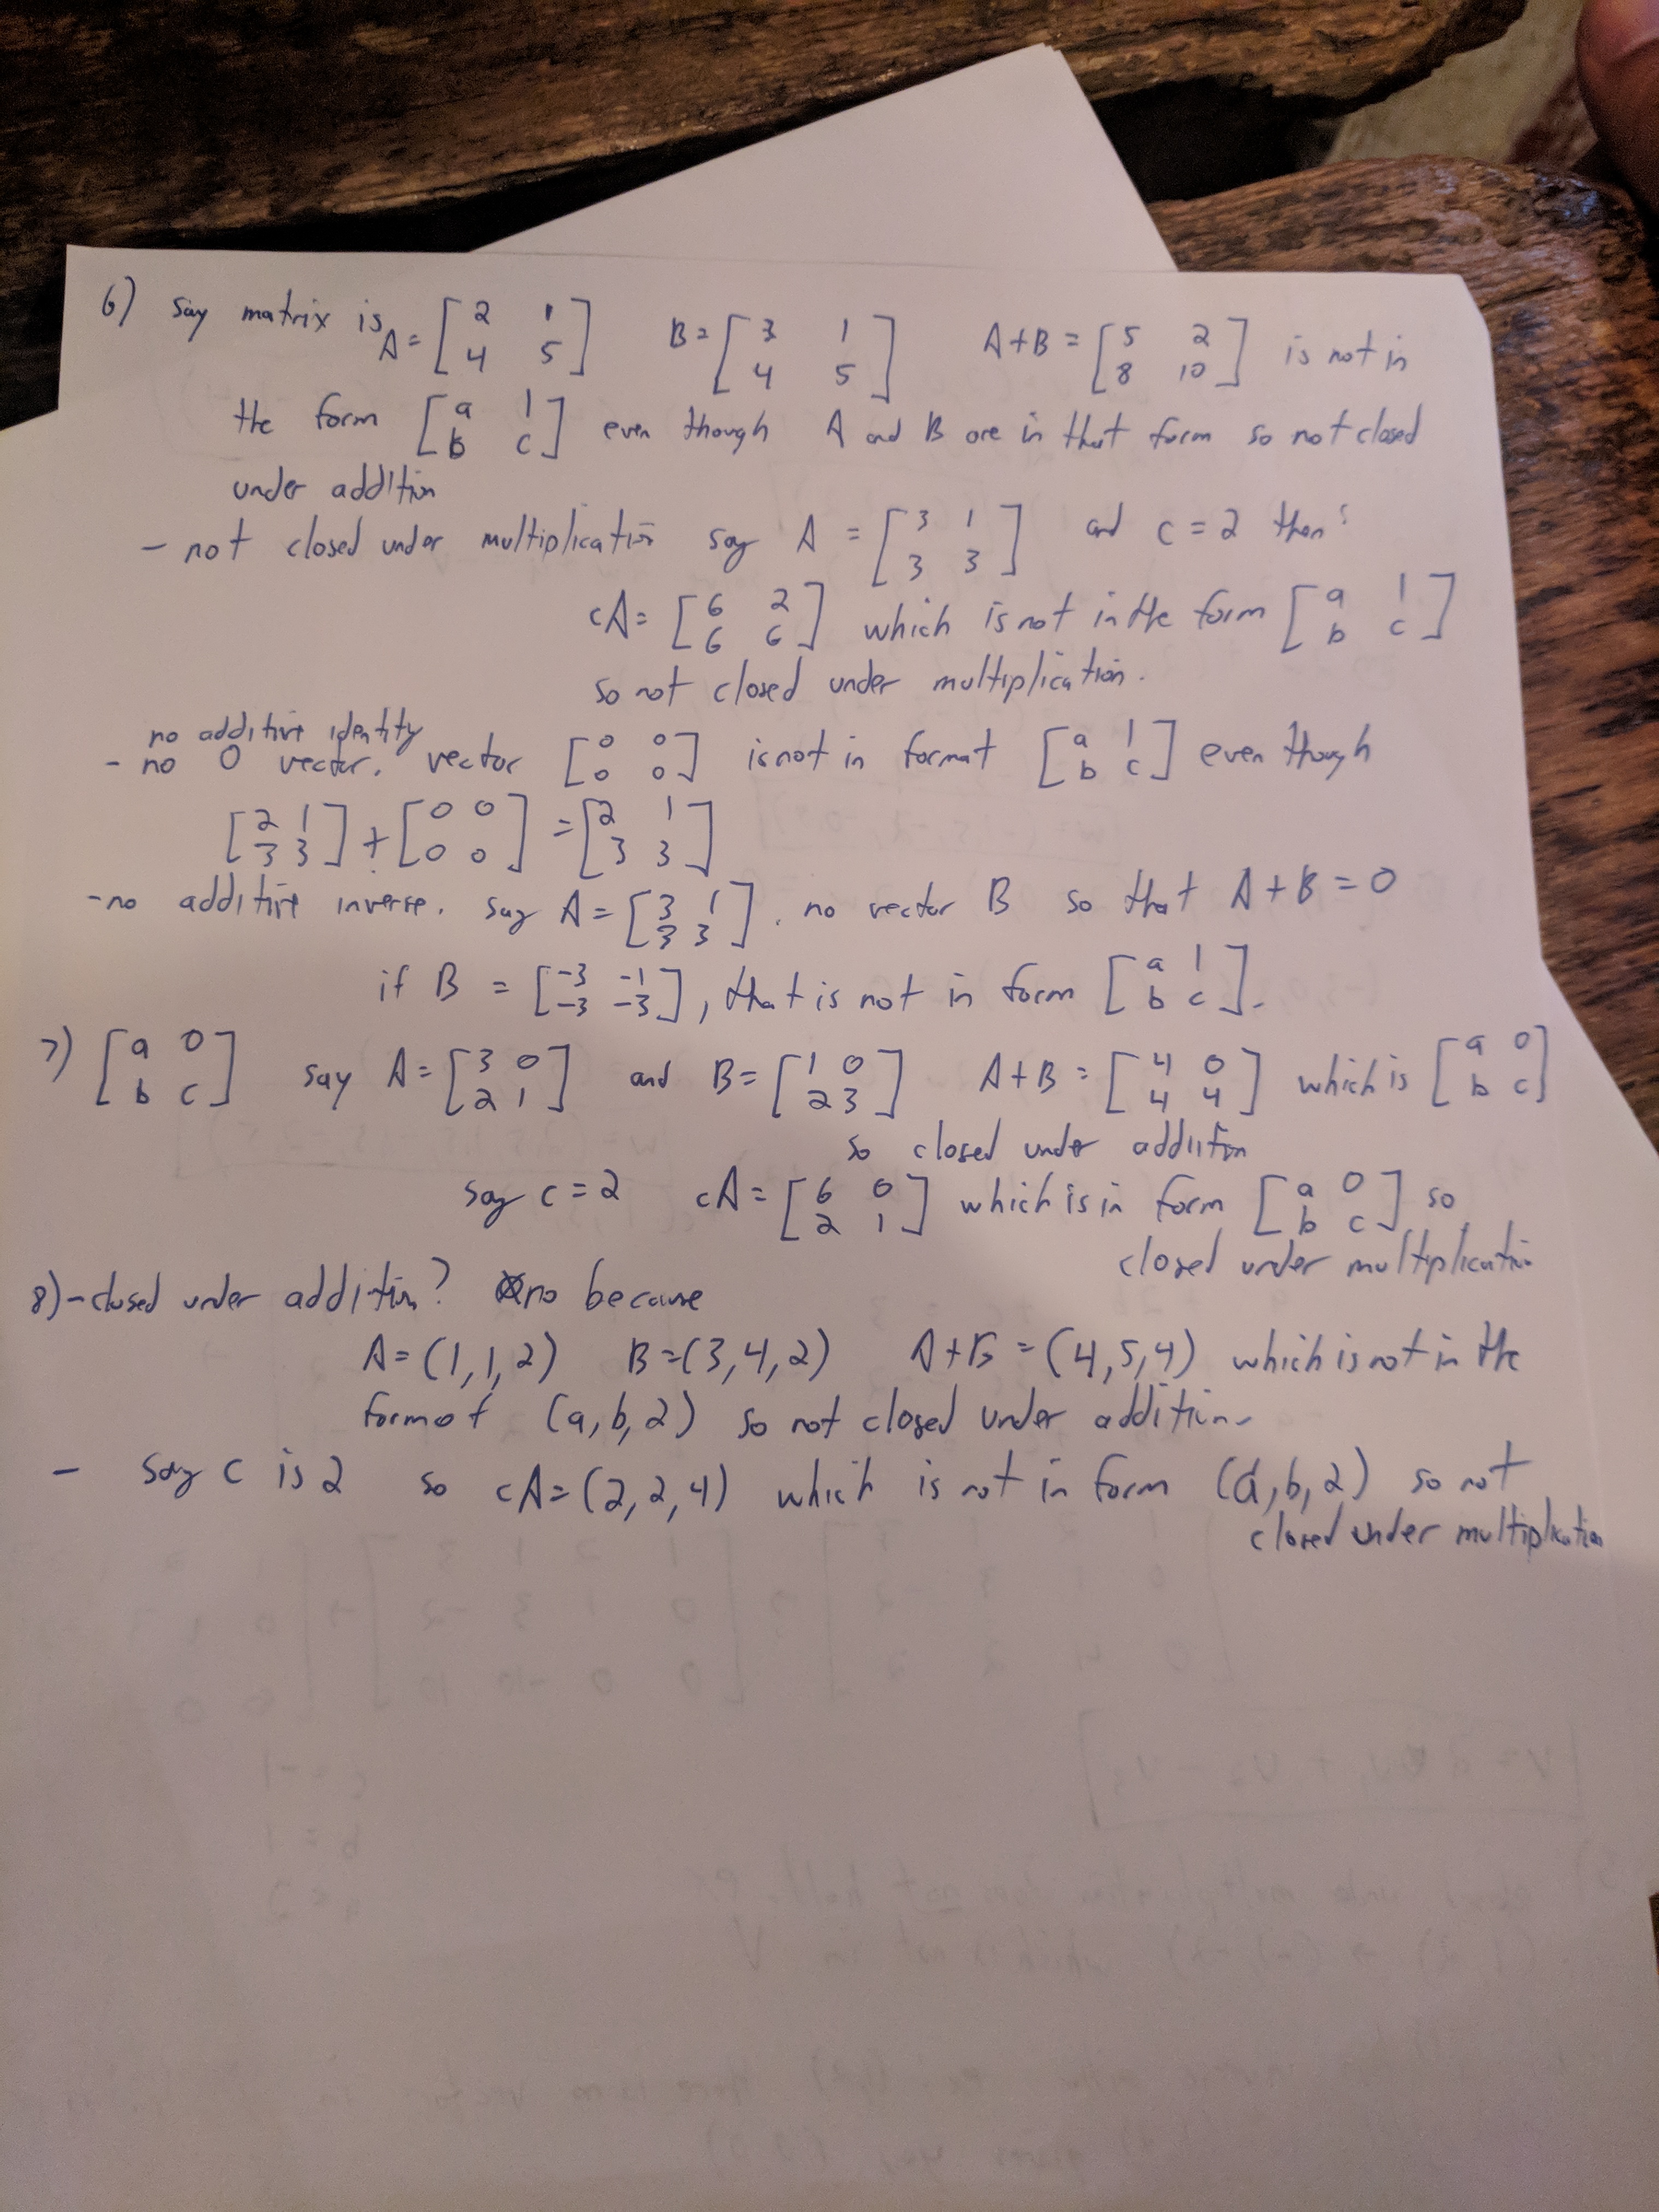 6) say matrix is A = [2 1; 4 5] B = [3 1; 4 5] A+B = [5 2; 8 10] is not in
the form [a 1; b c] even though A and B are in that form so not closed
under addition
- not closed under multiplication say A = [3 1; 3 3] and c = 2 then:
cA = [6 2; 6 6] which is not in the form [a 1; b c]
so not closed under multiplication.
no additive identity
- no 0 vector. vector [0 0; 0 0] is not in format [a 1; b c] even though
[2 1; 3 3] + [0 0; 0 0] = [2 1; 3 3]
- no additive inverse. say A = [3 1; 3 3]. no vector B so that A + B = 0
if B = [-3 -1; -3 -3], that is not in form [a 1; b c].
7) [a 0; b c] say A = [3 0; 2 1] and B = [1 0; 2 3] A+B = [4 0; 4 4] which is [a 0; b c]
so closed under addition
say c = 2 cA = [6 0; 2 1] which is in form [a 0; b c] so
closed under multiplication
8) - closed under addition? no because
A = (1,1,2) B = (3,4,2) A+B = (4,5,4) which is not in the
format (a,b,2) so not closed under addition.
- say c is 2 so cA = (2,2,4) which is not in form (a,b,2) so not
closed under multiplication